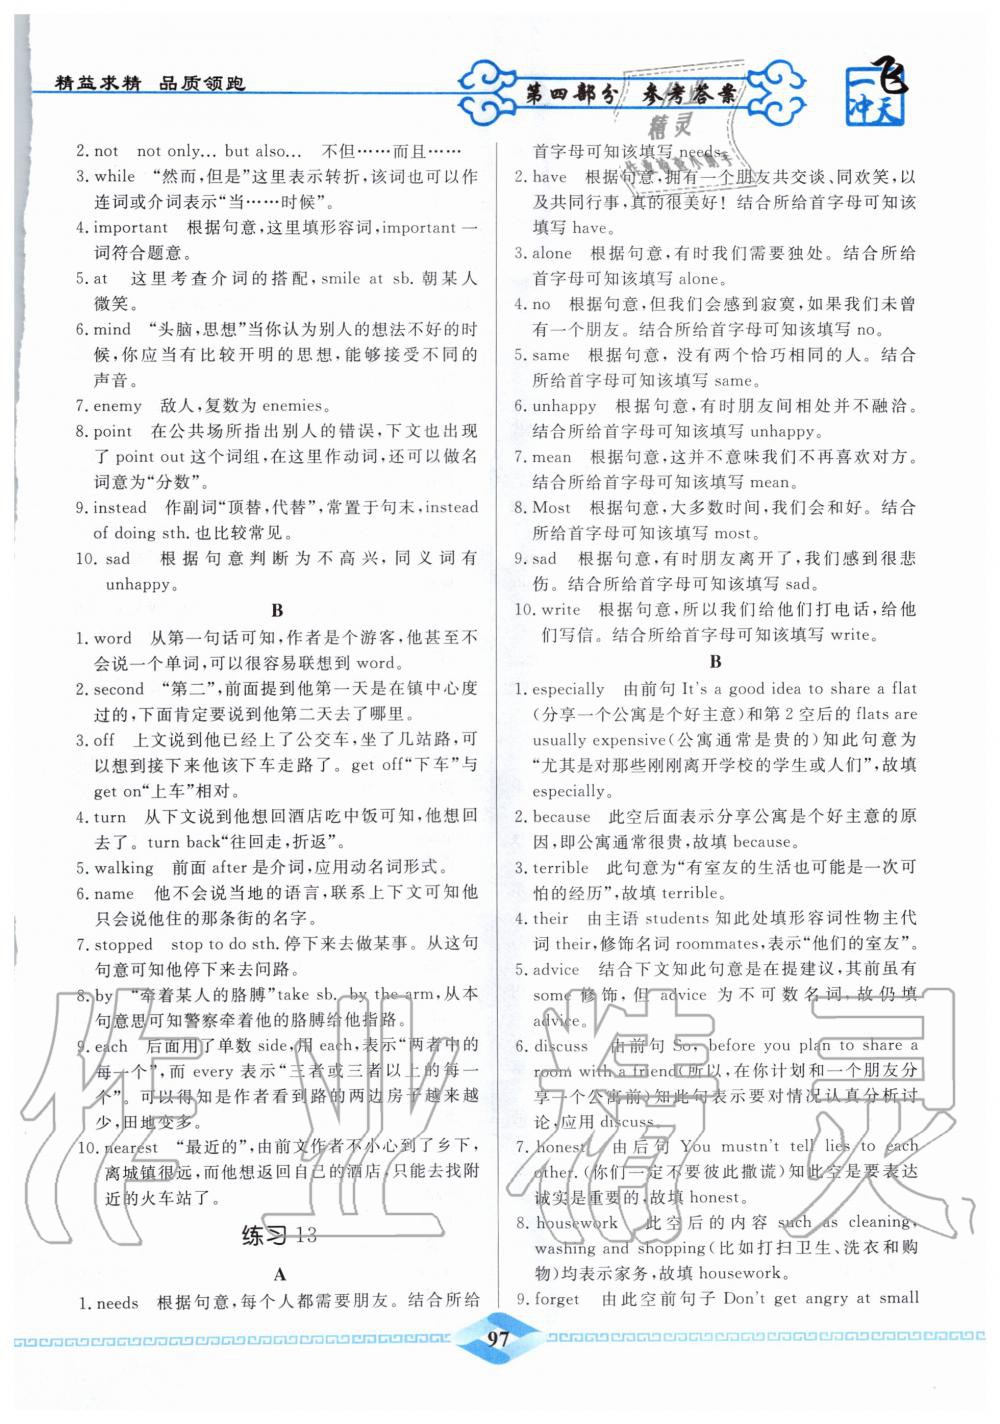 精益求精 品质领跑
第四部分 参考答案
一飞冲天
2. not not only… but also… 不但……而且……
3. while “然而,但是”这里表示转折,该词也可以作
连词或介词表示“当……时候”。
4. important 根据句意,这里填形容词,important 一
词符合题意。
5. at 这里考查介词的搭配,smile at sb. 朝某人
微笑。
6. mind “头脑,思想”当你认为别人的想法不好的时
候,你应当有比较开明的思想,能够接受不同的
声音。
7. enemy 敌人,复数为 enemies。
8. point 在公共场所指出别人的错误,下文也出现
了 point out 这个词组,在这里作动词,还可以做名
词意为“分数”。
9. instead 作副词“顶替,代替”,常置于句末,instead
of doing sth. 也比较常见。
10. sad 根据句意判断为不高兴,同义词有
unhappy。
B
1. word 从第一句话可知,作者是个游客,他甚至不
会说一个单词,可以很容易联想到 word。
2. second “第二”,前面提到他第一天是在镇中心度
过的,下面肯定要说到他第二天去了哪里。
3. off 上文说到他已经上了公交车,坐了几站路,可
以想到接下来他该下车走路了。get off“下车”与
get on“上车”相对。
4. turn 从下文说到他想回酒店吃中饭可知,他想回
去了。turn back“往回走,折返”。
5. walking 前面 after 是介词,应用动名词形式。
6. name 他不会说当地的语言,联系上下文可知他
只会说他住的那条街的名字。
7. stopped stop to do sth. 停下来去做某事。从这句
句意可知他停下来去问路。
8. by “牵着某人的胳膊”take sb. by the arm,从本
句意思可知警察牵着他的胳膊给他指路。
9. each 后面用了单数 side,用 each,表示“两者中的
每一个”,而 every 表示“三者或三者以上的每一
个”。可以得知是作者看到路的两边房子越来越
少,田地变多。
10. nearest “最近的”,由前文作者不小心到了乡下,
离城镇很远,而他想返回自己的酒店,只能去找附
近的火车站了。
练习 13
A
1. needs 根据句意,每个人都需要朋友。结合所给
首字母可知该填写 needs。
2. have 根据句意,拥有一个朋友共交谈、同欢笑,以
及共同行事,真的很美好！结合所给首字母可知该
填写 have。
3. alone 根据句意,有时我们需要独处。结合所给
首字母可知该填写 alone。
4. no 根据句意,但我们会感到寂寞,如果我们未曾
有一个朋友。结合所给首字母可知该填写 no。
5. same 根据句意,没有两个恰巧相同的人。结合
所给首字母可知该填写 same。
6. unhappy 根据句意,有时朋友间相处并不融洽。
结合所给首字母可知该填写 unhappy。
7. mean 根据句意,这并不意味我们不再喜欢对方。
结合所给首字母可知该填写 mean。
8. Most 根据句意,大多数时间,我们会和好。结合
所给首字母可知该填写 most。
9. sad 根据句意,有时朋友离开了,我们感到很悲
伤。结合所给首字母可知该填写 sad。
10. write 根据句意,所以我们给他们打电话,给他
们写信。结合所给首字母可知该填写 write。
B
1. especially 由前句 It's a good idea to share a flat
(分享一个公寓是个好主意)和第 2 空后的 flats are
usually expensive(公寓通常是贵的)知此句意为
“尤其是对那些刚刚离开学校的学生或工人们”,故填
especially。
2. because 此空后面表示分享公寓是个好主意的原
因,即公寓通常很贵,故填 because。
3. terrible 此句意为“有室友的生活也可能是一次可
怕的经历”,故填 terrible。
4. their 由主语 students 知此处填形容词性物主代
词 their,修饰名词 roommates,表示“他们的室友”。
5. advice 结合下文知此句意是在提建议,其前虽有
some 修饰,但 advice 为不可数名词,故仍填
advice。
6. discuss 由前句 So, before you plan to share a
flat with a friend(所以,在你计划和一个朋友分
享一个公寓前)知此句表示要对情况认真分析讨
论,应用 discuss。
7. honest 由后句 You mustn't tell lies to each
other.(你们一定不要彼此撒谎)知此空是要表达
诚实是重要的,故填 honest。
8. housework 此空后的内容 such as cleaning,
washing and shopping(比如打扫卫生、洗衣和购
物)均表示家务,故填 housework。
9. forget 由此空前句子 Don't get angry at small
97
作业精灵